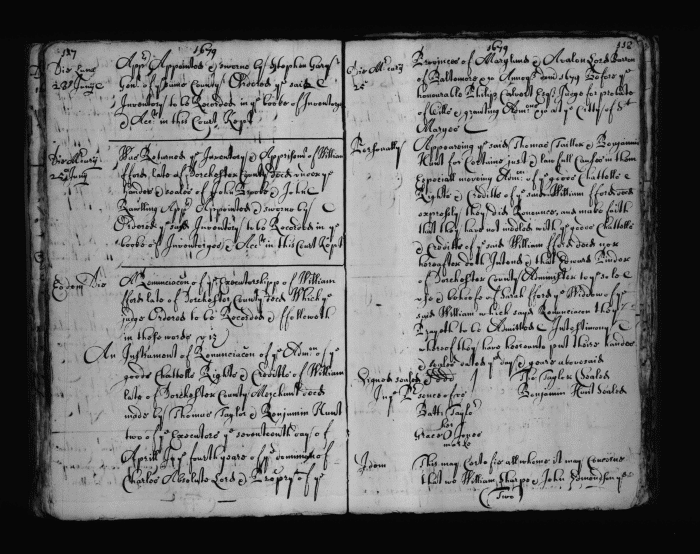 157
1679
Die Lunæ
23º Juny
App. Appointed & sworne by Stephen Gary
Gent of yᵉ same County Ordered yᵉ said
Inventory to be Recorded in yᵉ booke of Inventory
& Accᵗ in this Court Kept
Die Mercury
Was Returned yᵉ Inventory & Apprismᵗ of William
fford late of Dorchester County decd under yᵉ
hands & seales of John Brooke & John
Rawlling App. Appointed & sworne by
Ordered yᵉ said Inventory to be Recorded in yᵉ
booke of Inventoryes & Accᵗ in this Court Kept
Eodem Die
A Renunciacon of yᵉ Executorshipp of William
fford late of Dorchester County decd Which yᵉ
judge Ordered to be Recorded & ffolloweth
in these words viz
An Instrument of Renunciacon of yᵉ Admⁿ of yᵉ
goods Chattells Rights & Creditts of William
late of Dorchester County Merchant decd
made by Thomas Taylor & Benjamin Hunt
two of yᵉ Executors yᵉ seventeenth day of
Aprill yᵉ fourth yeare of yᵉ dominion of
Charles Absolute Lord & Propry of yᵉ
1679
158
Die Mercury
25º
Provinces of Maryland & Avalon Lord Barron
of Baltemore & Annoqᵉ dom 1679 Before yᵉ
honourable Philip Calvert Esqʳ Judge for probate
of Wills & granting Admⁿ at yᵉ Citty of Sᵗ
Maryes
Personally
Appearing yᵉ said Thomas Tailler & Benjamin
Hunt for Certaine just & lawfull Causes in them
Especiall moving Admⁿ of yᵉ goods Chattells
Rights & Creditts of yᵉ said William fford decd
expressly they did Renounce, and make faith
that they have not medled with yᵉ goods Chattells
& Creditts of yᵉ said William fford decd nor
hereafter doth Intend & that Edward Pinder
of Dorchester County Administer to yᵉ sole
use & behoofe of Sarah fford yᵉ Widdow of yᵉ
said William which said Renunciacon they
Prayeth to be Admitted In testimony
whereof they have hereunto put their hands
& seales dated yᵉ day & yeare abovesaid
Signed sealed &
In yᵉ
Tho Taylor Sealed
Benjamin Hunt Sealed
Batt: Taylor
Grace Jones
marke
Idem
This may Certefie all whome it may Concerne
that wee William Sharpe & John Edmondson yᵉ
Two